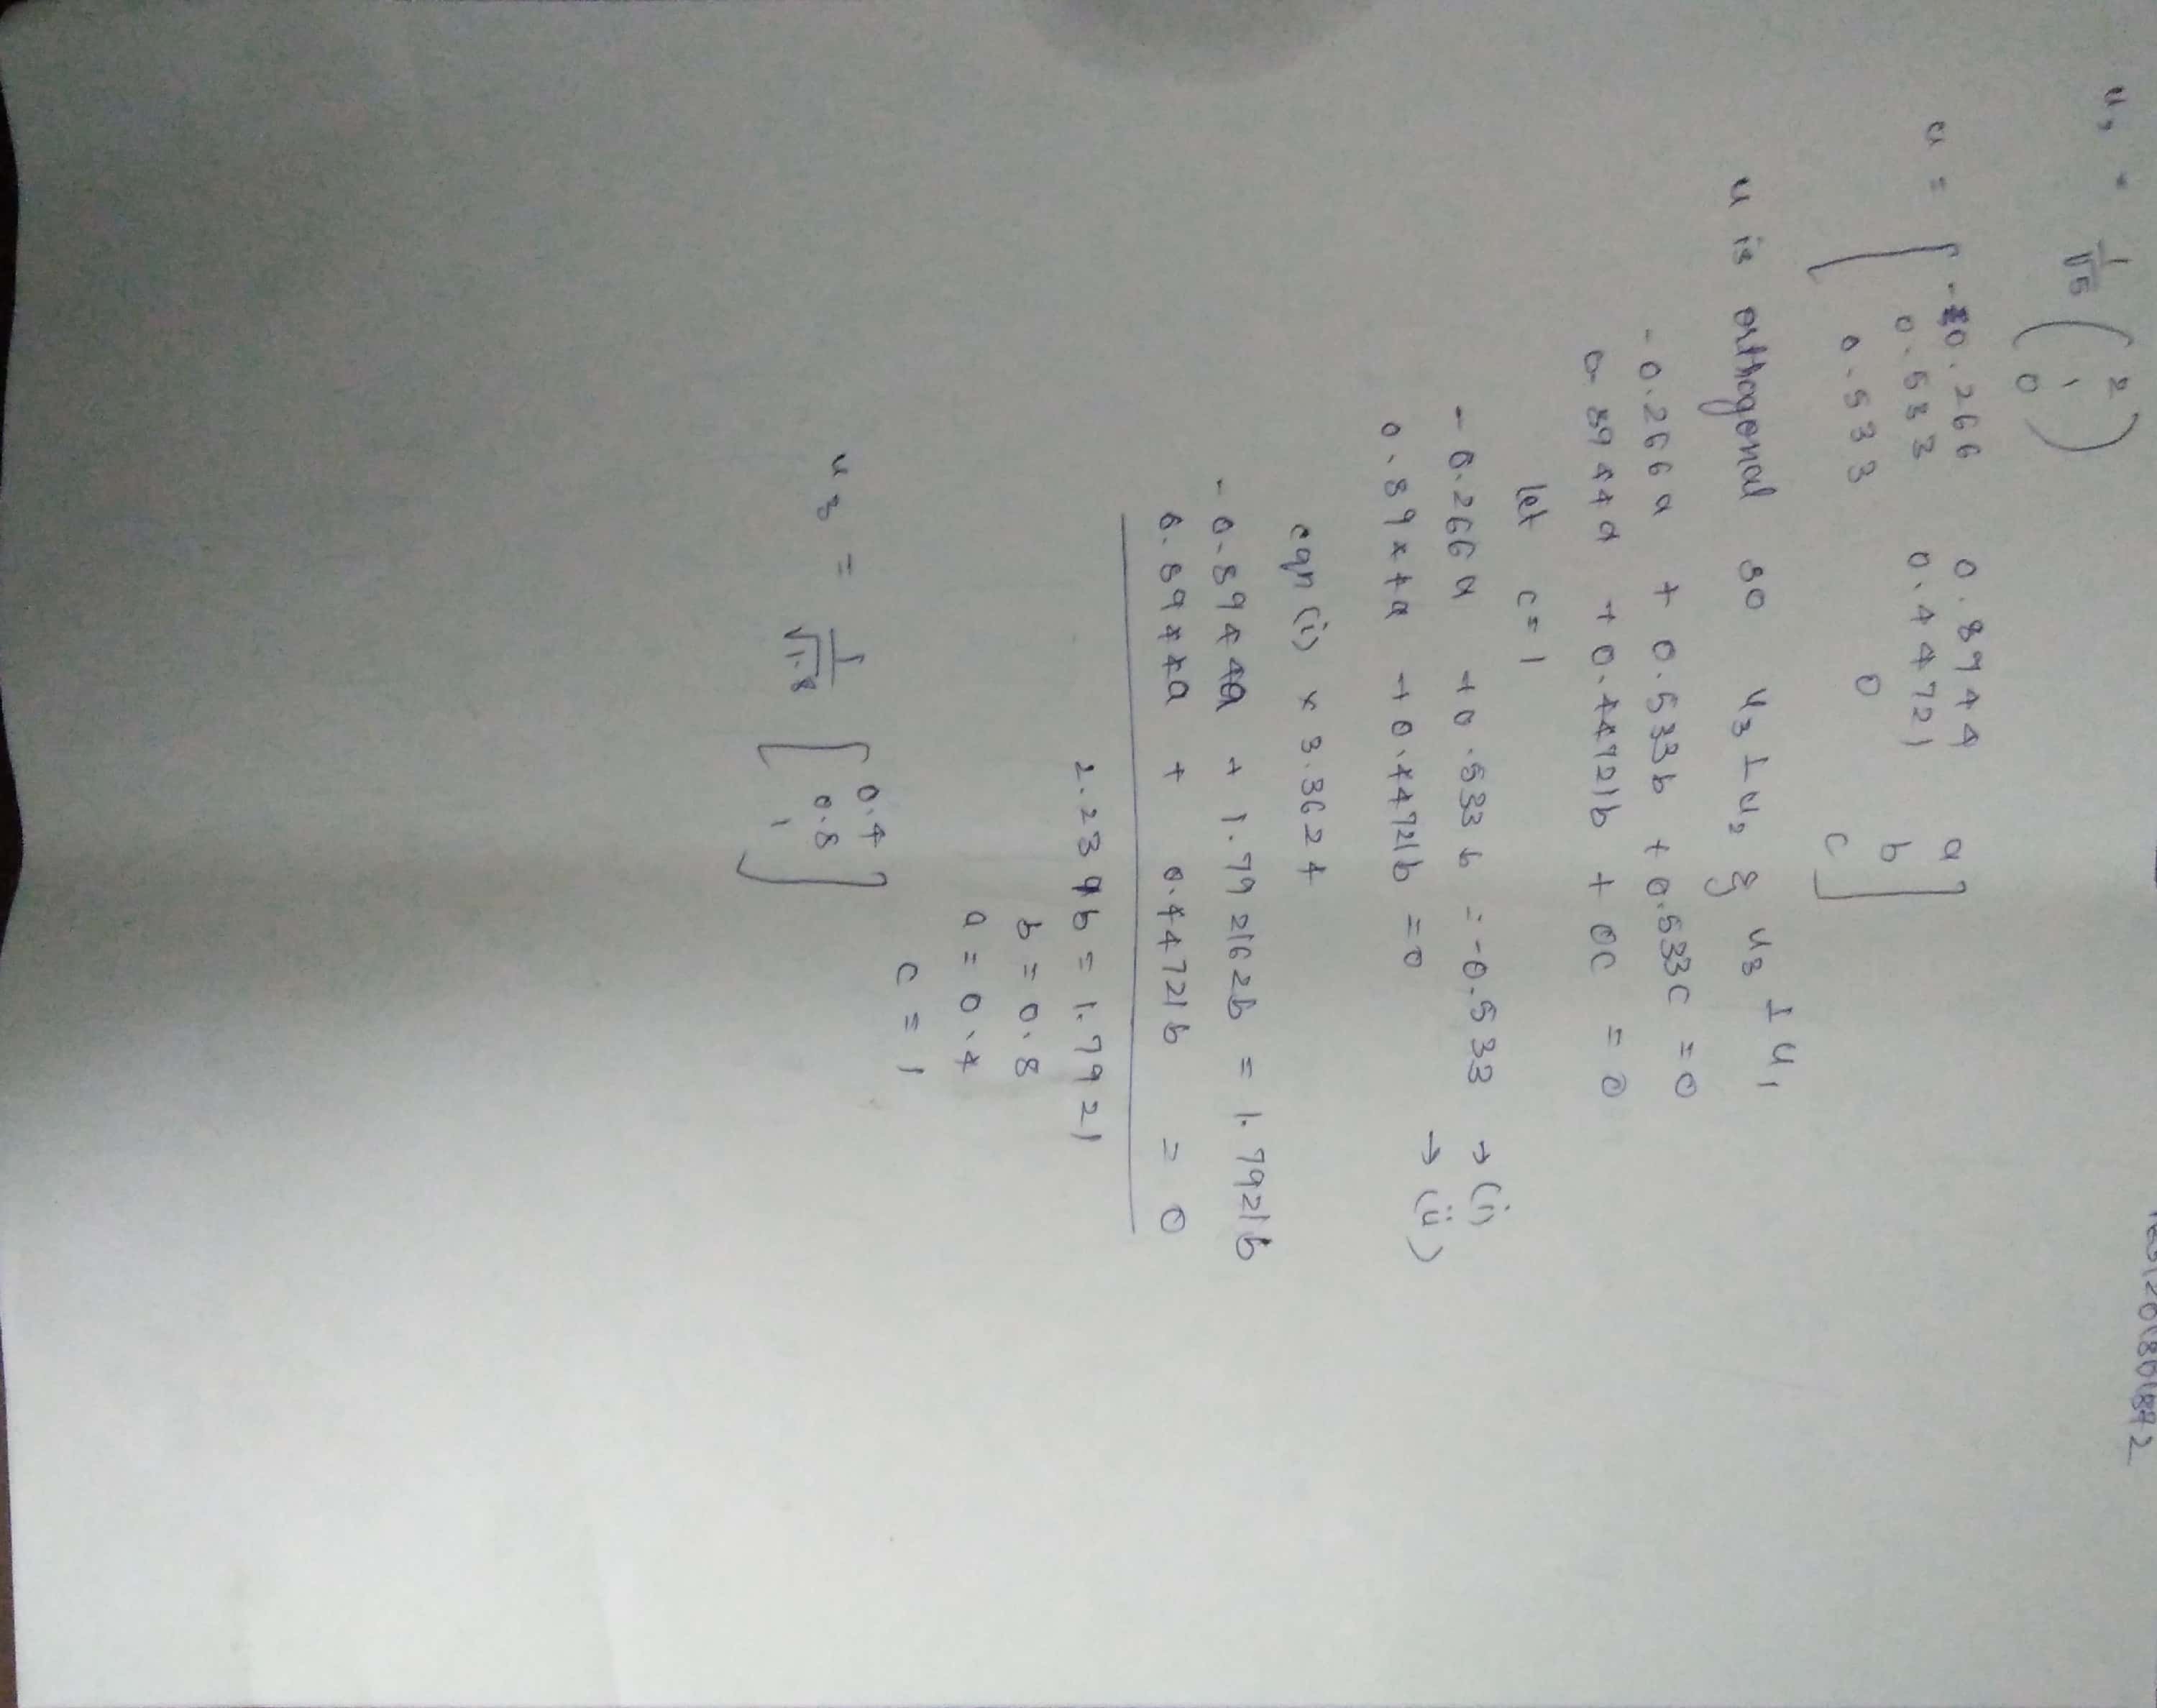 u₂ = 1/√5 (2 1 0)
u = [ -0.266 0.8944 a
0.533 0.44721 b
0.533 0 c ]
u is orthogonal so u₃ ⊥ u₂ & u₃ ⊥ u₁
-0.266a + 0.533b + 0.533c = 0
0.8944a + 0.44721b + 0c = 0
let c = 1
-0.266a + 0.533b = -0.533 → (i)
0.8944a + 0.44721b = 0 → (ii)
eqn (i) × 3.3624
-0.8944a + 1.792162b = 1.7921b
0.8944a + 0.44721b = 0
2.239b = 1.7921
b = 0.8
a = 0.4
c = 1
u₃ = 1/√1.8 [ 0.4
0.8
1 ]